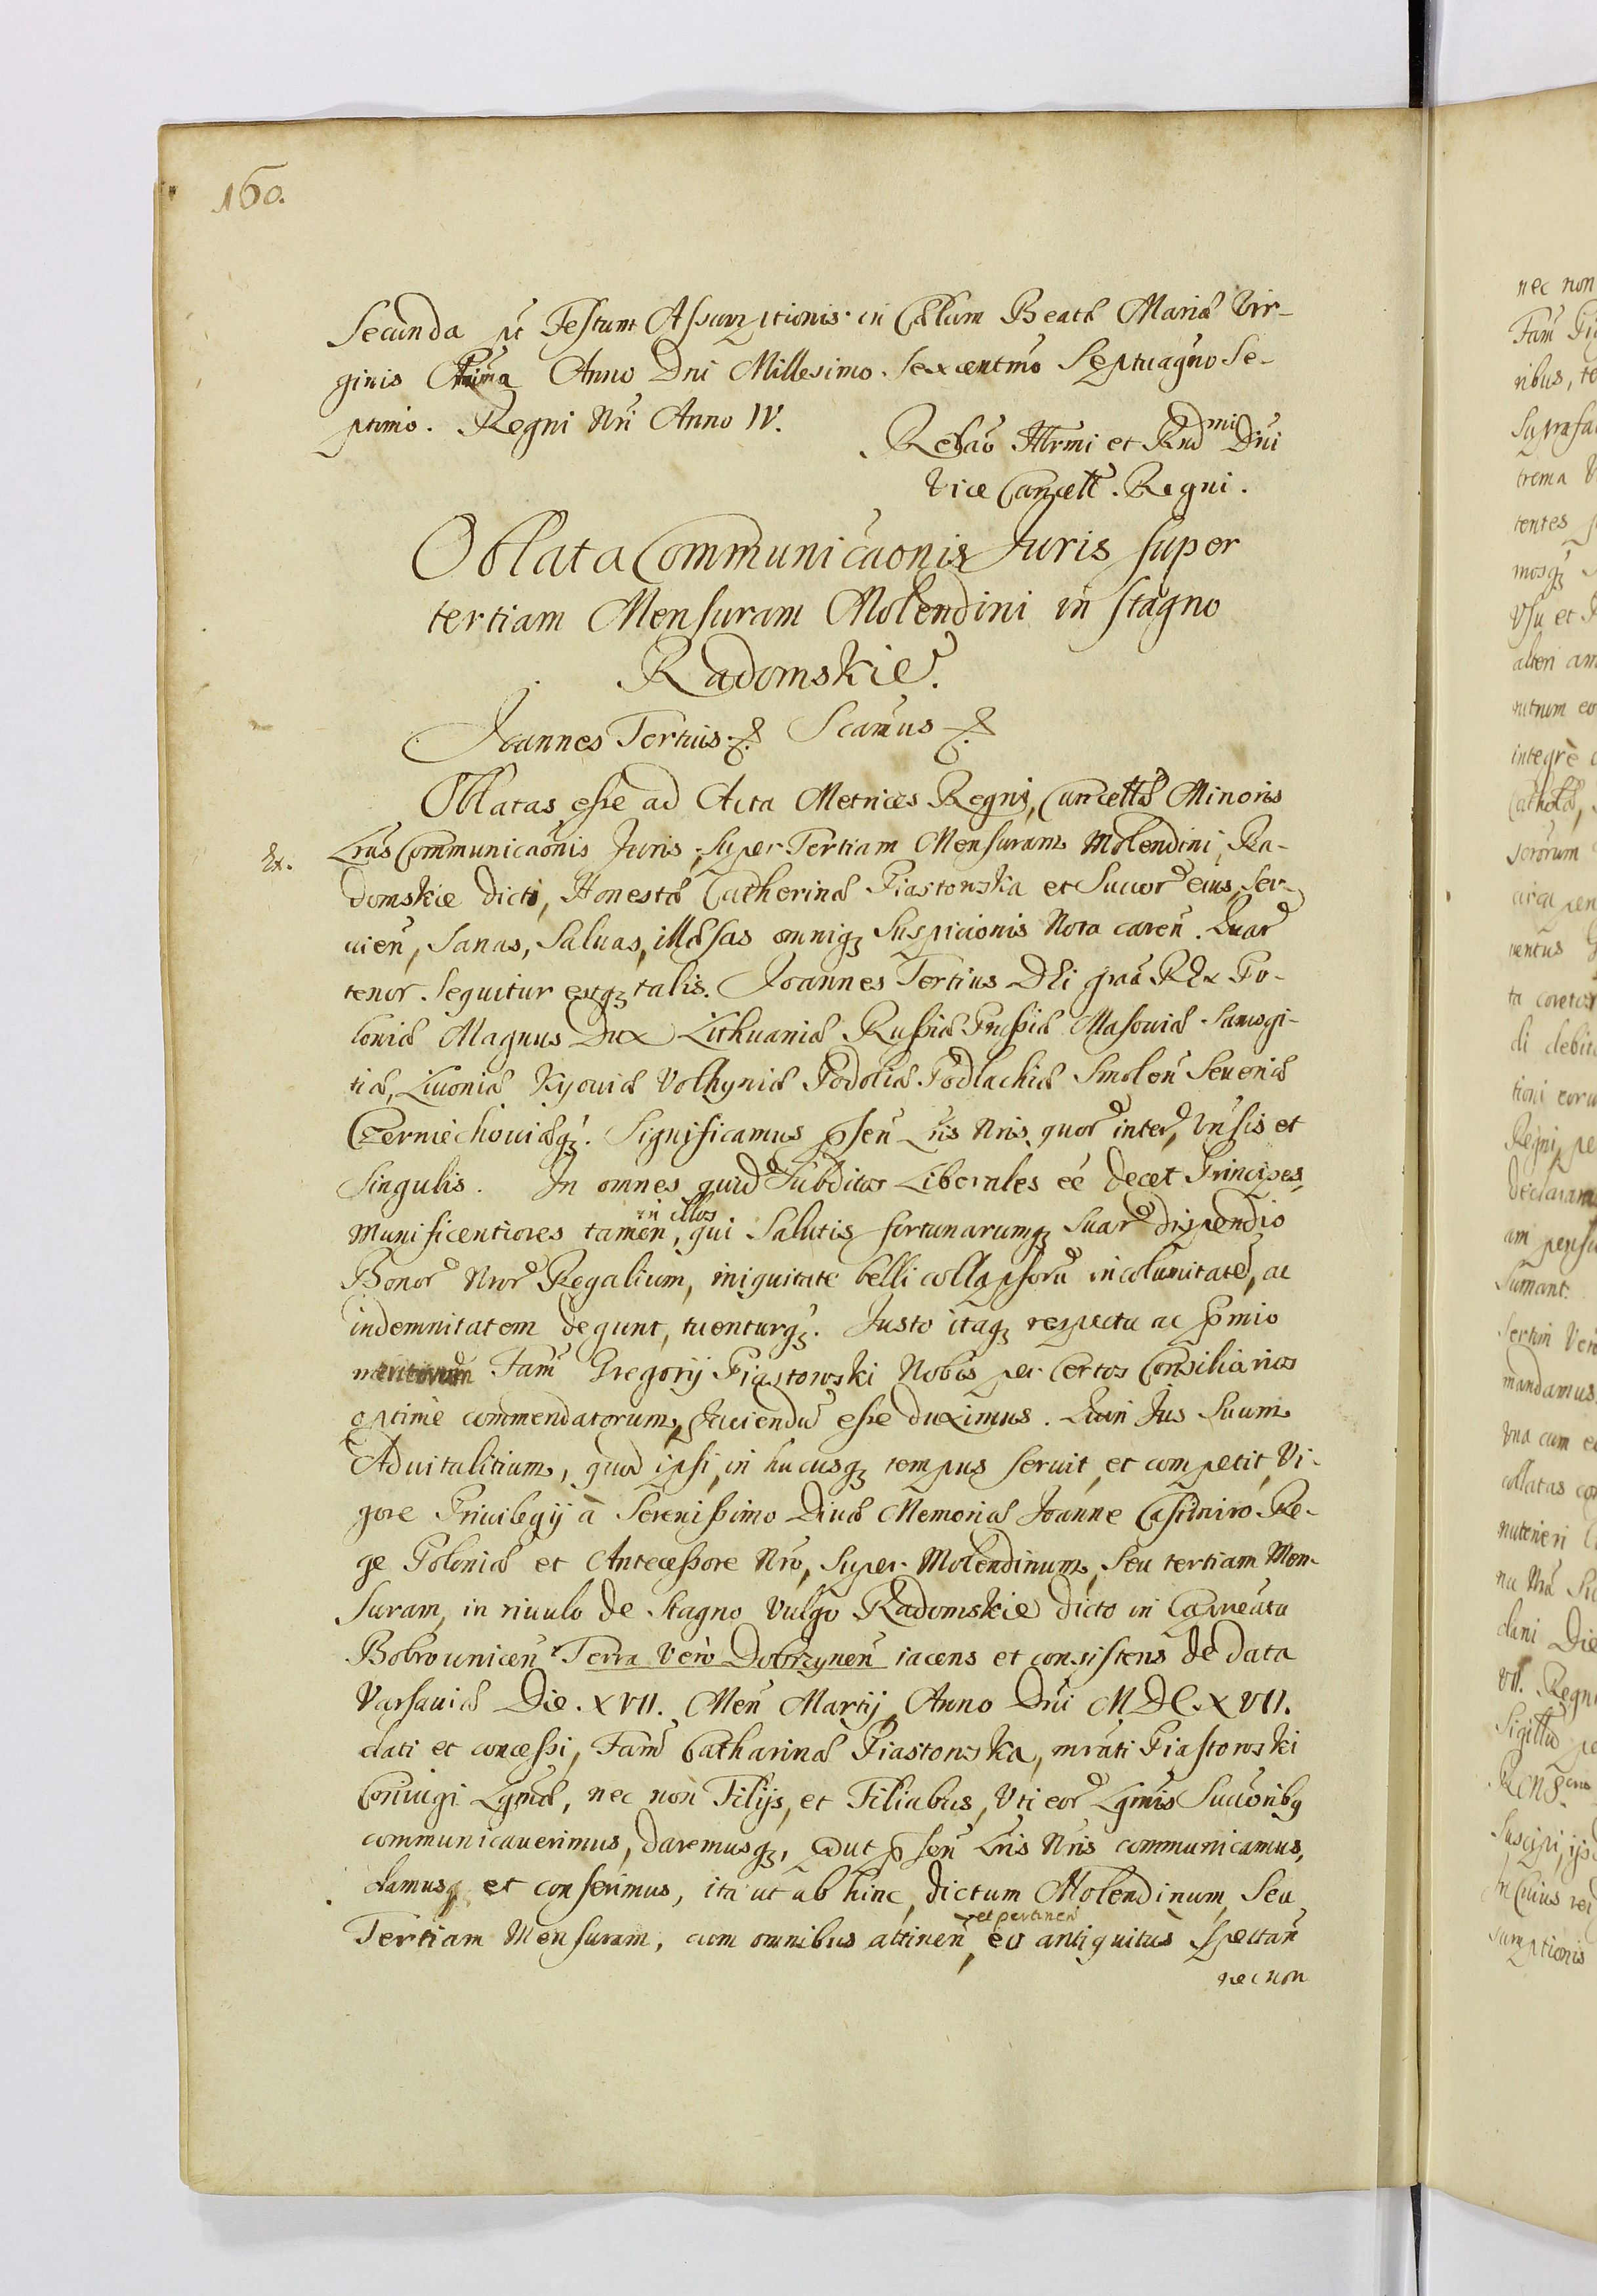 160.
Secunda pt Festum Assumptionis in Cælum Beatæ Mariæ Vir-
ginis Prima Anno Dni Millesimo Sexcentmo Septuagno Se-
ptimo. Regni Nri Anno IV.
Relaō Illrmi et Rndmi Dni
Vice Cancell. Regni.
Oblata Communicaonis Juris super
tertiam Mensuram Molendini in stagno
Radomskie.
Joannes Tertius Scamus
Oblatas esse ad Acta Metrices Regni, Cancellæ Minoris
Ex. Lras Communicaonis Juris, super Tertiam Mensuram Molendini, Ra-
domskie dicti, Honestæ Catherinæ Piastowska et Succor eius, ser-
uien, Sanas, Saluas, illæsas omniq; Suspicionis Nota caren. Quar
tenor sequitur estq; talis. Joannes Tertius Dei gra Rex Po-
loniæ Magnus Dux Lithuaniæ Russiæ Prussiæ Masouiæ Samogi-
tiæ, Liuoniæ Kyouiæ Volhyniæ Podoliæ Podlachiæ Smolen Seueriæ
Czerniechouiæq;. Significamus psen Lris Nris quor inter, Vnsis et
Singulis. In omnes quid Subditos Liberales eé decet Principes,
Munificentiores tamen, in illos qui Salutis fortunarumq; Suar dispendio
Bonor Nror Regalium, iniquitate belli collapsoru incolumitate, ac
indemnitatem degunt, tuenturq;. Justo itaq; respectu ac pmio
meritorum Fam Gregorij Piastowski Nobis per Certos Consiliarios
optime commendatorum, ducendu esse duximus. Quin Jus Suum
Aduitalitium, quod ipsi, in hucusq; tempus seruit, et competit, Vi-
gore Priuilegij à Serenissimo Diuæ Memoriæ Joanne Casimiro Re-
ge Poloniæ et Antecessore Nro, super Molendinum, Seu tertiam Men-
suram, in riuulo de Stagno Vulgo Radomskie dicto in Capneatu
Bobrounicen Terra Vero Dobrzynen iacens et consistens de data
Varsauiæ Die. XVII. Men Martij Anno Dni M. DC. XVII.
dati et concessi, Famæ Catharinæ Piastowska, mrati Piastowski
Coniugi Lgmæ, nec non Filijs, et Filiabus, Vti eor Lgmis Succoribq
communicauerimus, daremusq;, put psen Lris Nris communicamus,
damusq; et conferimus, ita ut ab hinc, dictum Molendinum, Seu
Tertiam Mensuram, cum omnibus attinen et pertinen eo antiquitus spectan
nec non